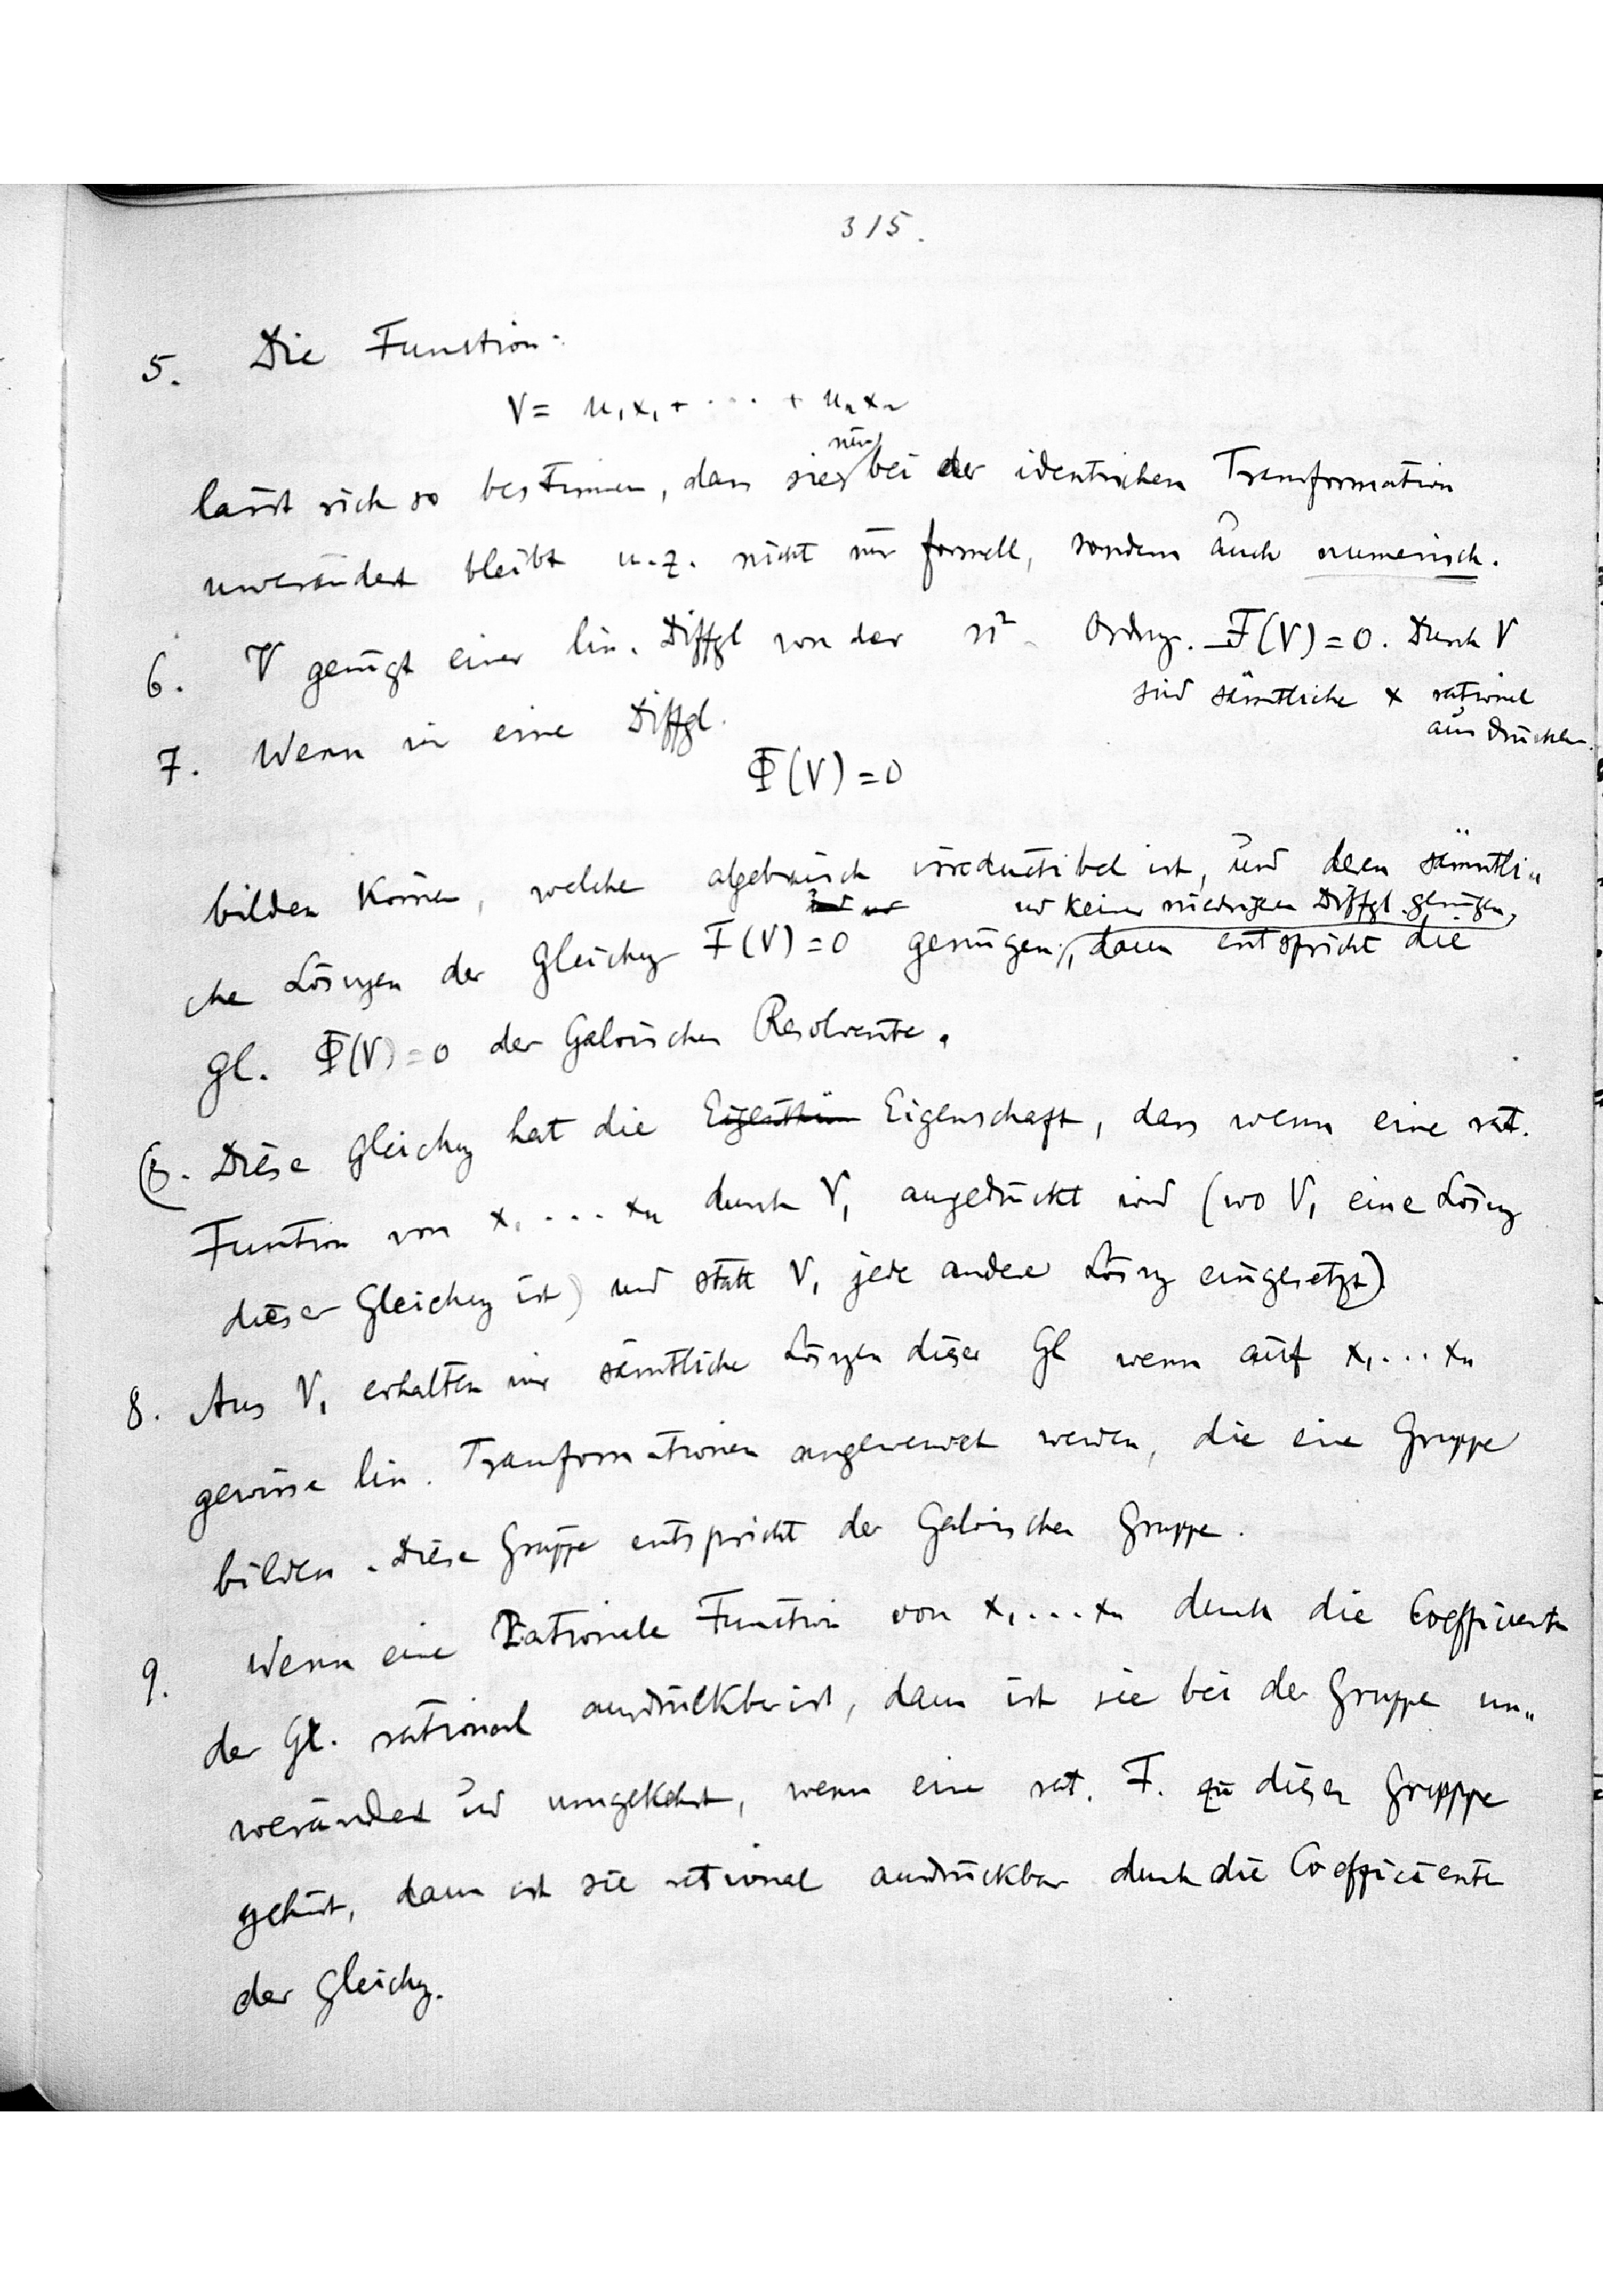 315.
5. Die Function
V = u₁x₁ + ··· + uₙxₙ
nur
lässt sich so bestimmen, dass sie bei der identischen Transformation
unverändert bleibt u.z. nicht nur formell, sondern auch numerisch.
6. V genügt einer lin. Diffgl von der n² Ordng. F(V) = 0. Durch V
sind sämtliche x rational
ausdrücken.
7. Wenn wir eine Diffgl.
Φ(V) = 0
bilden können, welche algebraisch irreductibel ist, und deren sämmtli„
und keiner niedrigeren Diffgl. genügen,
che Lösungen der Gleichg F(V) = 0 genügen, dann entspricht die
Gl. Φ(V) = 0 der Galoisschen Resolvente.
(8. Diese Gleichg hat die Eigenschaft, dass wenn eine rat.
Function von x₁ ... xₙ durch V₁ ausgedrückt wird (wo V₁ eine Lösung
dieser Gleichg ist) und statt V₁ jede andere Lösung eingesetzt)
8. Aus V₁ erhalten wir sämtliche Lösungen dieser Gl wenn auf x₁ ... xₙ
gewisse lin. Transformationen angewendet werden, die eine Gruppe
bilden. Diese Gruppe entspricht der Galoisschen Gruppe.
9. Wenn eine Rationale Function von x₁ ... xₙ durch die Coefficienten
der Gl. rational ausdrückbar ist, dann ist sie bei der Gruppe un„
verändert und umgekehrt, wenn eine rat. F. zu dieser Grupppe
gehört, dann ist sie rational ausdrückbar durch die Coefficiente
der Gleichg.